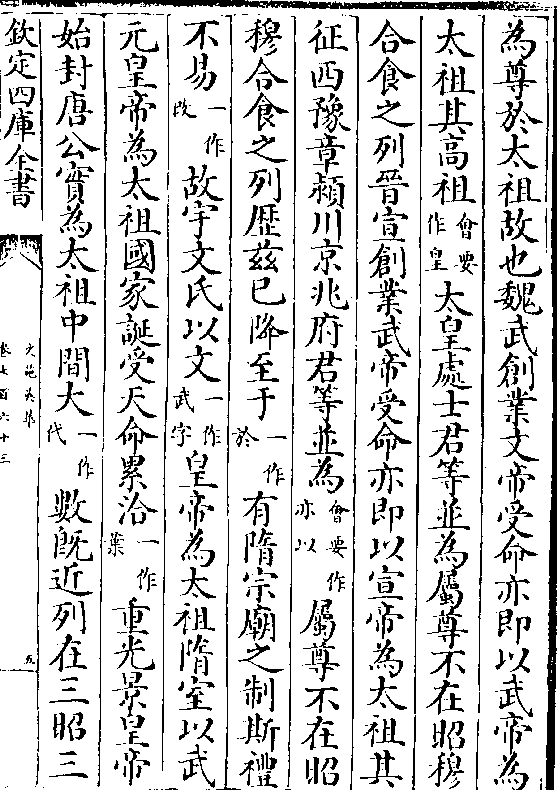 為尊於太祖故也魏武創業文帝受命亦即以武帝為
太祖其高祖會要作皇太皇處士君等並為屬尊不在昭穆
合食之列晉宣創業武帝受命亦即以宣帝為太祖其
征西豫章潁川京兆府君等並為會要作亦以屬尊不在昭
穆合食之列歴兹已降至于一作於有隋宗廟之制斯禮
不易一作改故宇文氏以文一作武字皇帝為太祖隋室以武
元皇帝為太祖國家誕受天命累洽一作葉重光景皇帝
始封唐公實為太祖中間大一作代數既近列在三昭三
欽定四庫全書
文苑英華
卷七百六十三
五